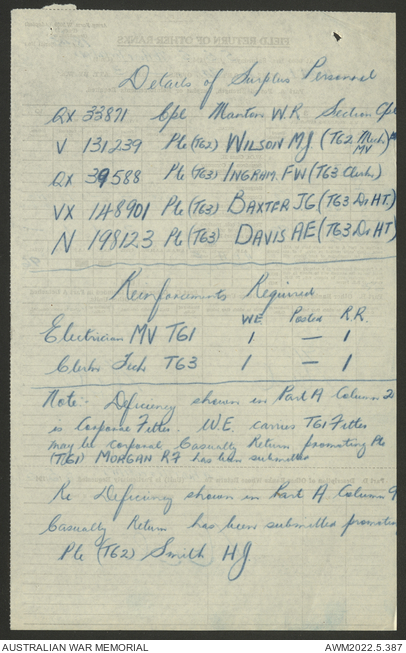 Details of Surplus Personnel
QX 33871 Cpl Manton W.R. Section Cpl
V 131239 Pte (TG2) WILSON MJ (TG2 Mech. MV)
QX 39588 Pte (TG3) INGRAM. FW (TG3 Clerk)
VX 148901 Pte (TG3) BAXTER JG (TG3 Dr HT)
N 198123 Pte (TG3) DAVIS AE (TG3 Dr HT)
Reinforcements Required
W.E. Posted R.R.
Electrician MV TG1 1 — 1
Clerk Tech TG3 1 — 1
Note:- Deficiency shown in Part A Column 2
is Corporal Fitter. W.E. carries TG1 Fitter
may be corporal Casualty Return promoting Pte
(TG1) MORGAN RF has been submitted
Re Deficiency shown in Part A. Column 9
Casualty Return has been submitted promoting
Pte (TG2) Smith HJ
AUSTRALIAN WAR MEMORIAL AWM2022.5.387